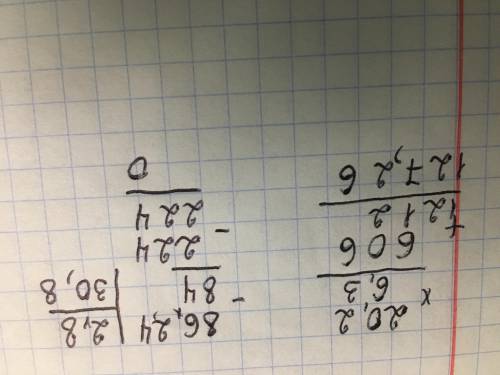 20,2
× 6,3
606
+1212
127,26
86,24 | 2,8
- 84 | 30,8
224
- 224
0